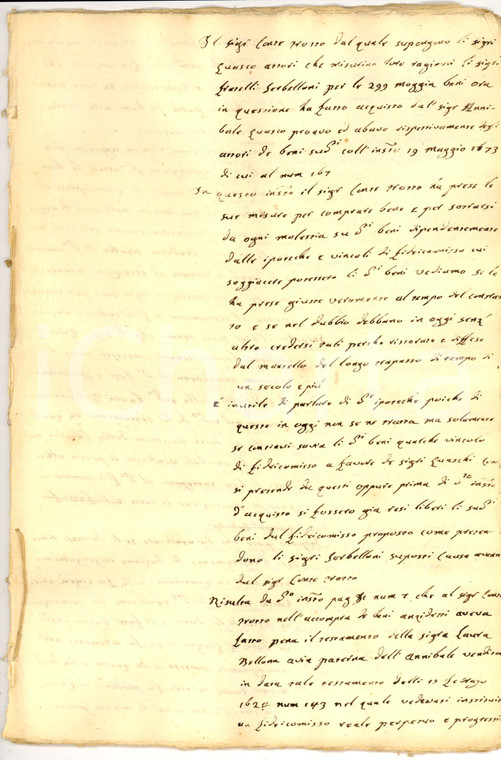 Il sigr Conte Trotto dal quale supongono li sigri
Guasco attori che riservino loro ragioni li sigri
fratelli Serbelloni per le 299 moggia beni ora
in questione ha fatto acquisto dall' sigr Anni-
bale Guasco proavo ed abavo rispettivamente degli
attori de beni sudi coll' instro 19 maggio 1673
di cui al num 167
In questo instro il sigr Conte Trotto ha prese le
sue misure per comprare bene e per sottrarsi
da ogni molestia su di beni dipendentemente
dalle ipoteche e vincoli di fideicomisso cui
soggiacere potessero li di beni vediamo se le
ha prese giuste veramente al tempo del contrat-
to e se nel dubbio debbano in oggi senz'
altro credersi tali perche ristorate e diffese
dal mantello del longo trapasso di tempo di
un secolo e più
È inutile di parlare di de ipoteche poiche di
queste in oggi non se ne tratta ma solamente
se contravi sovra li di beni qualche vincolo
di fideicomisso a favore de sigri Guaschi
si pretende da questi oppure prima di do instro
d'acquisto si fossero gia resi liberi li sudi
beni dal fideicomisso proposto come preten-
dono li sigri Serbelloni suposti causa aventi
dal sigr Conte Trotto
Risulta da do instro pag num 7 che al sigr Conte
Trotto nell' accompra de beni anzidetti aveva
fatto pena il testamento della sigra Laura
Bellona avia paterna dell' Annibale venditore
in data tale testamento delli 17 febrajo
1624 num 143 nel quale vedevasi instituito
un fideicomisso reale perpetuo e progressivo